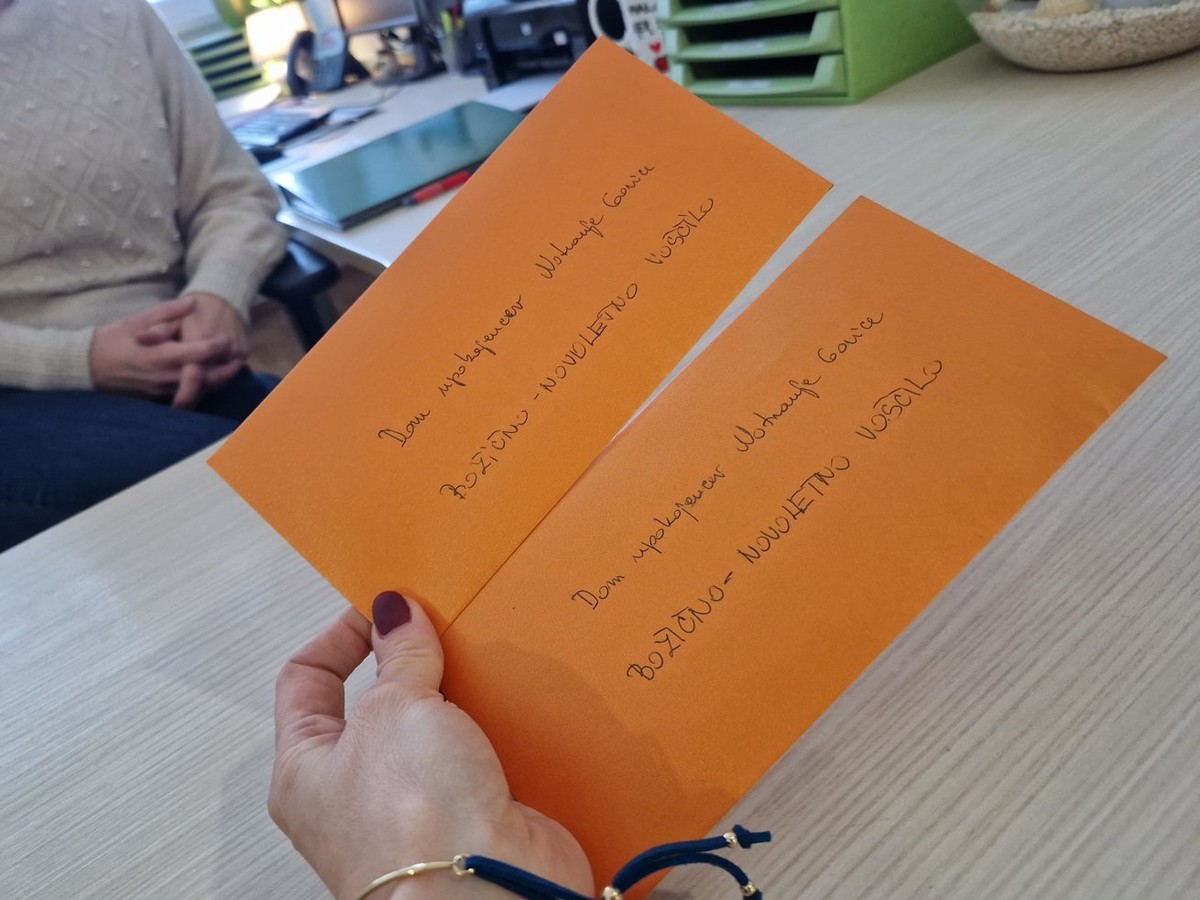 Dom upokojencev Notranje Gorice
BOŽIČNO - NOVOLETNO VOŠČILO
Dom upokojencev Notranje Gorice
BOŽIČNO - NOVOLETNO VOŠČILO